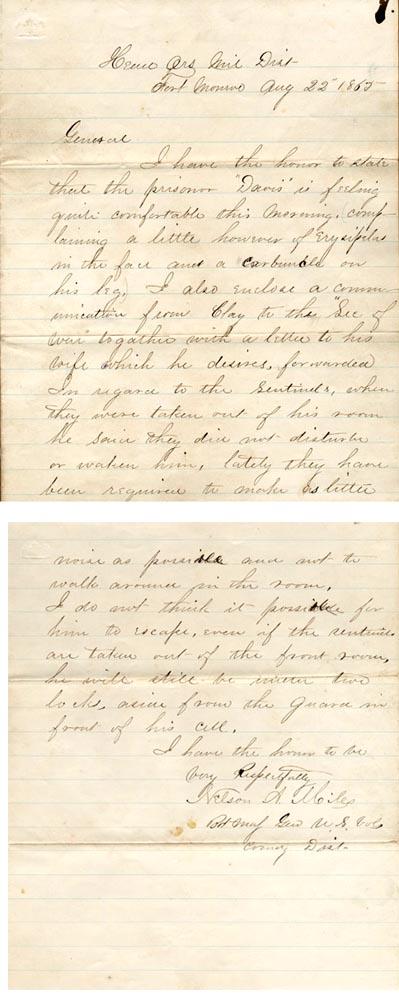 Head Qrs Mil Dist
Fort Monroe Aug 22" 1865
General
I have the honor to state
that the prisoner "Davis" is feeling
quite comfortable this morning, comp-
laining a little however of Erysipelas
in the face and a carbuncle on
his leg. I also enclose a comm-
unication from Clay to the "Sec of
War" together with a letter to his
wife which he desires, forwarded
In regard to the Sentinels, when
they were taken out of his room
he said they did not disturb
or waken him, lately they have
been required to make as little
noise as possible and not to
walk around in the room.
I do not think it possible for
him to escape, even if the sentinels
are taken out of the front room,
he will still be under two
locks, aside from the Guard in
front of his cell.
I have the honor to be
Very Respectfully
Nelson A. Miles
Bt Maj Gen U.S. Vols
Comdg Dist-